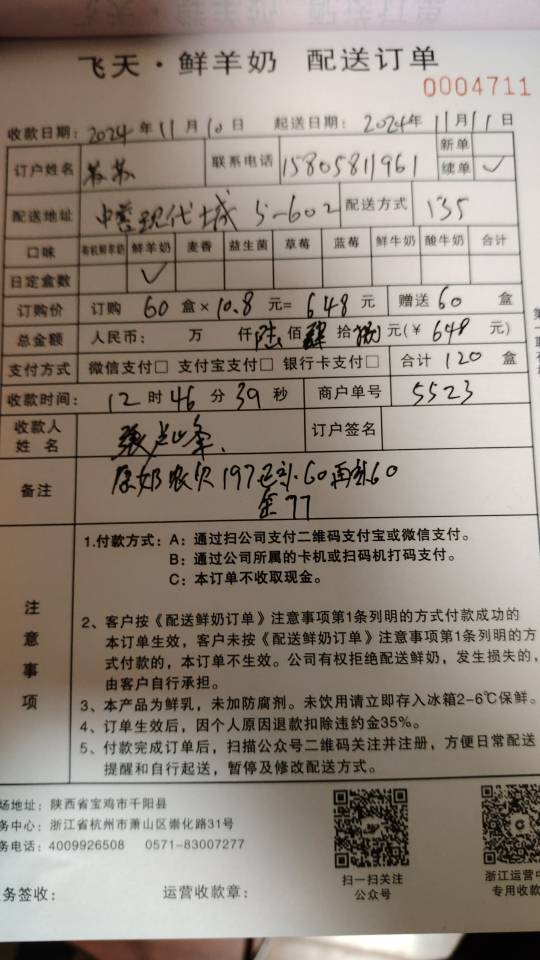 飞天·鲜羊奶 配送订单
0004711
收款日期：2024年11月10日 起送日期：2024年11月11日
订户姓名 苏苏 联系电话 15805811961 新单
续单 ✓
配送地址 现代城 5-602 配送方式 135
口味 有机鲜羊奶 鲜羊奶 麦香 益生菌 草莓 蓝莓 鲜牛奶 酸牛奶 合计
日定盒数 ✓
订购价 订购 60 盒×10.8元=648元 赠送60盒
总金额 人民币： 万 仟陆佰肆拾捌元(￥648元)
支付方式 微信支付□ 支付宝支付□ 银行卡支付□ 合计120盒
收款时间： 12时46分39秒 商户单号 5523
收款人
姓 名 张 订户签名
备注 原奶欠197已补60再补60
余77
注意事项
1.付款方式：A：通过扫公司支付二维码支付宝或微信支付。
B：通过公司所属的卡机或扫码机打码支付。
C：本订单不收取现金。
2、客户按《配送鲜奶订单》注意事项第1条列明的方式付款成功的
本订单生效，客户未按《配送鲜奶订单》注意事项第1条列明的方
式付款的，本订单不生效。公司有权拒绝配送鲜奶，发生损失的，
由客户自行承担。
3、本产品为鲜乳，未加防腐剂。未饮用请立即存入冰箱2-6℃保鲜。
4、订单生效后，因个人原因退款扣除违约金35%。
5、付款完成订单后，扫描公众号二维码关注并注册，方便日常配送
提醒和自行起送，暂停及修改配送方式。
场地址：陕西省宝鸡市千阳县
务中心：浙江省杭州市萧山区崇化路31号
务电话：4009926508 0571-83007277
扫一扫关注
公众号
浙江运营中
专用收款
务签收： 运营收款章：